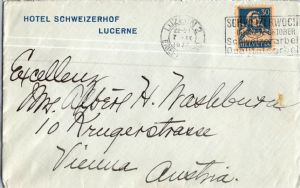 HOTEL SCHWEIZERHOF
LUCERNE
LUZERN 2
30
HELVETIA
Excellenz
Mrs. Albert H. Washburn
10 Krugerstrasse
Vienna
Austria.